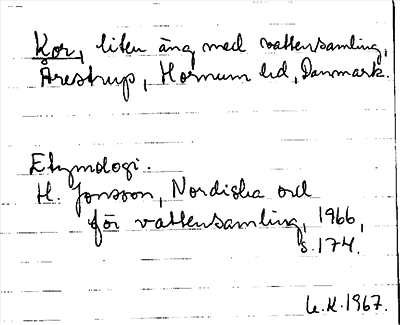 Kor, liten äng med vattensamling,
Årestrup, Hornum hd, Danmark.
Etymologi.
H. Jonsson, Nordiska ord
för vattensamling, 1966,
s. 174.
U.K. 1967.